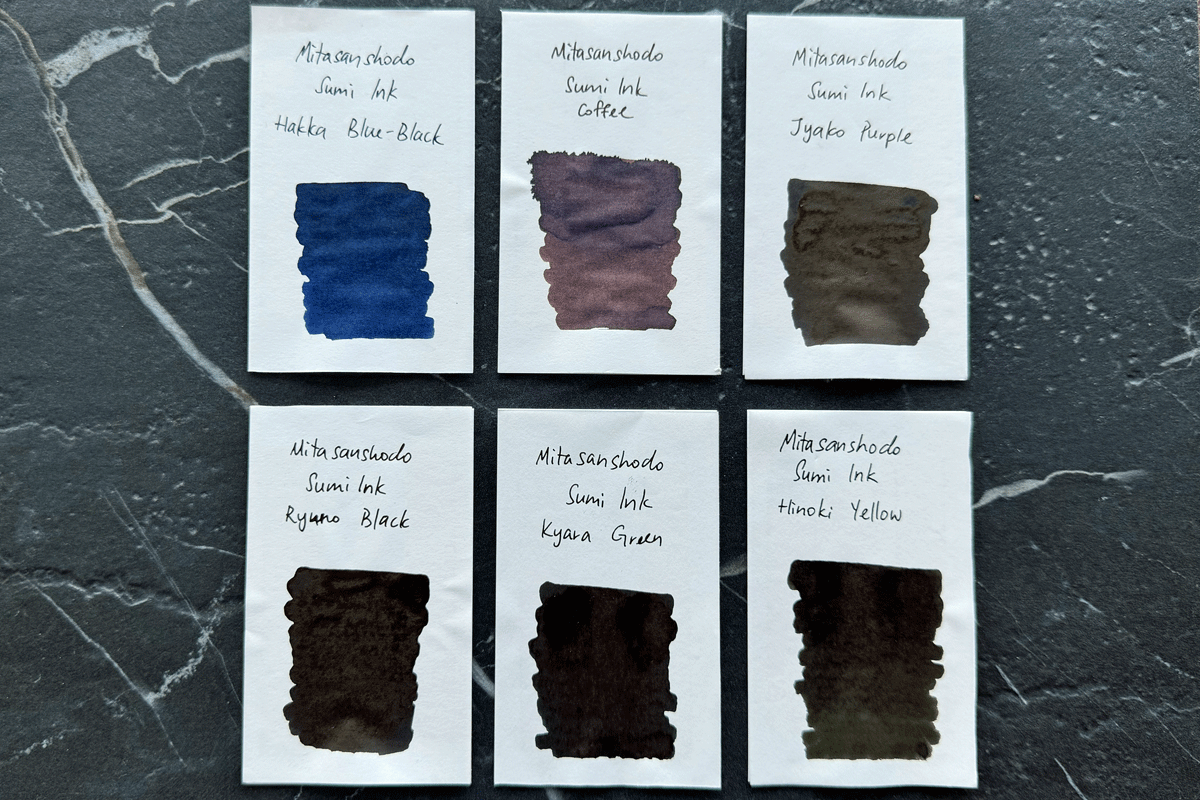 Mitasanshodo
Sumi Ink
Hakka Blue-Black
Mitasanshodo
Sumi Ink
Coffee
Mitasanshodo
Sumi Ink
Jyako Purple
Mitasanshodo
Sumi Ink
Ryuno Black
Mitasanshodo
Sumi Ink
Kyara Green
Mitasanshodo
Sumi Ink
Hinoki Yellow